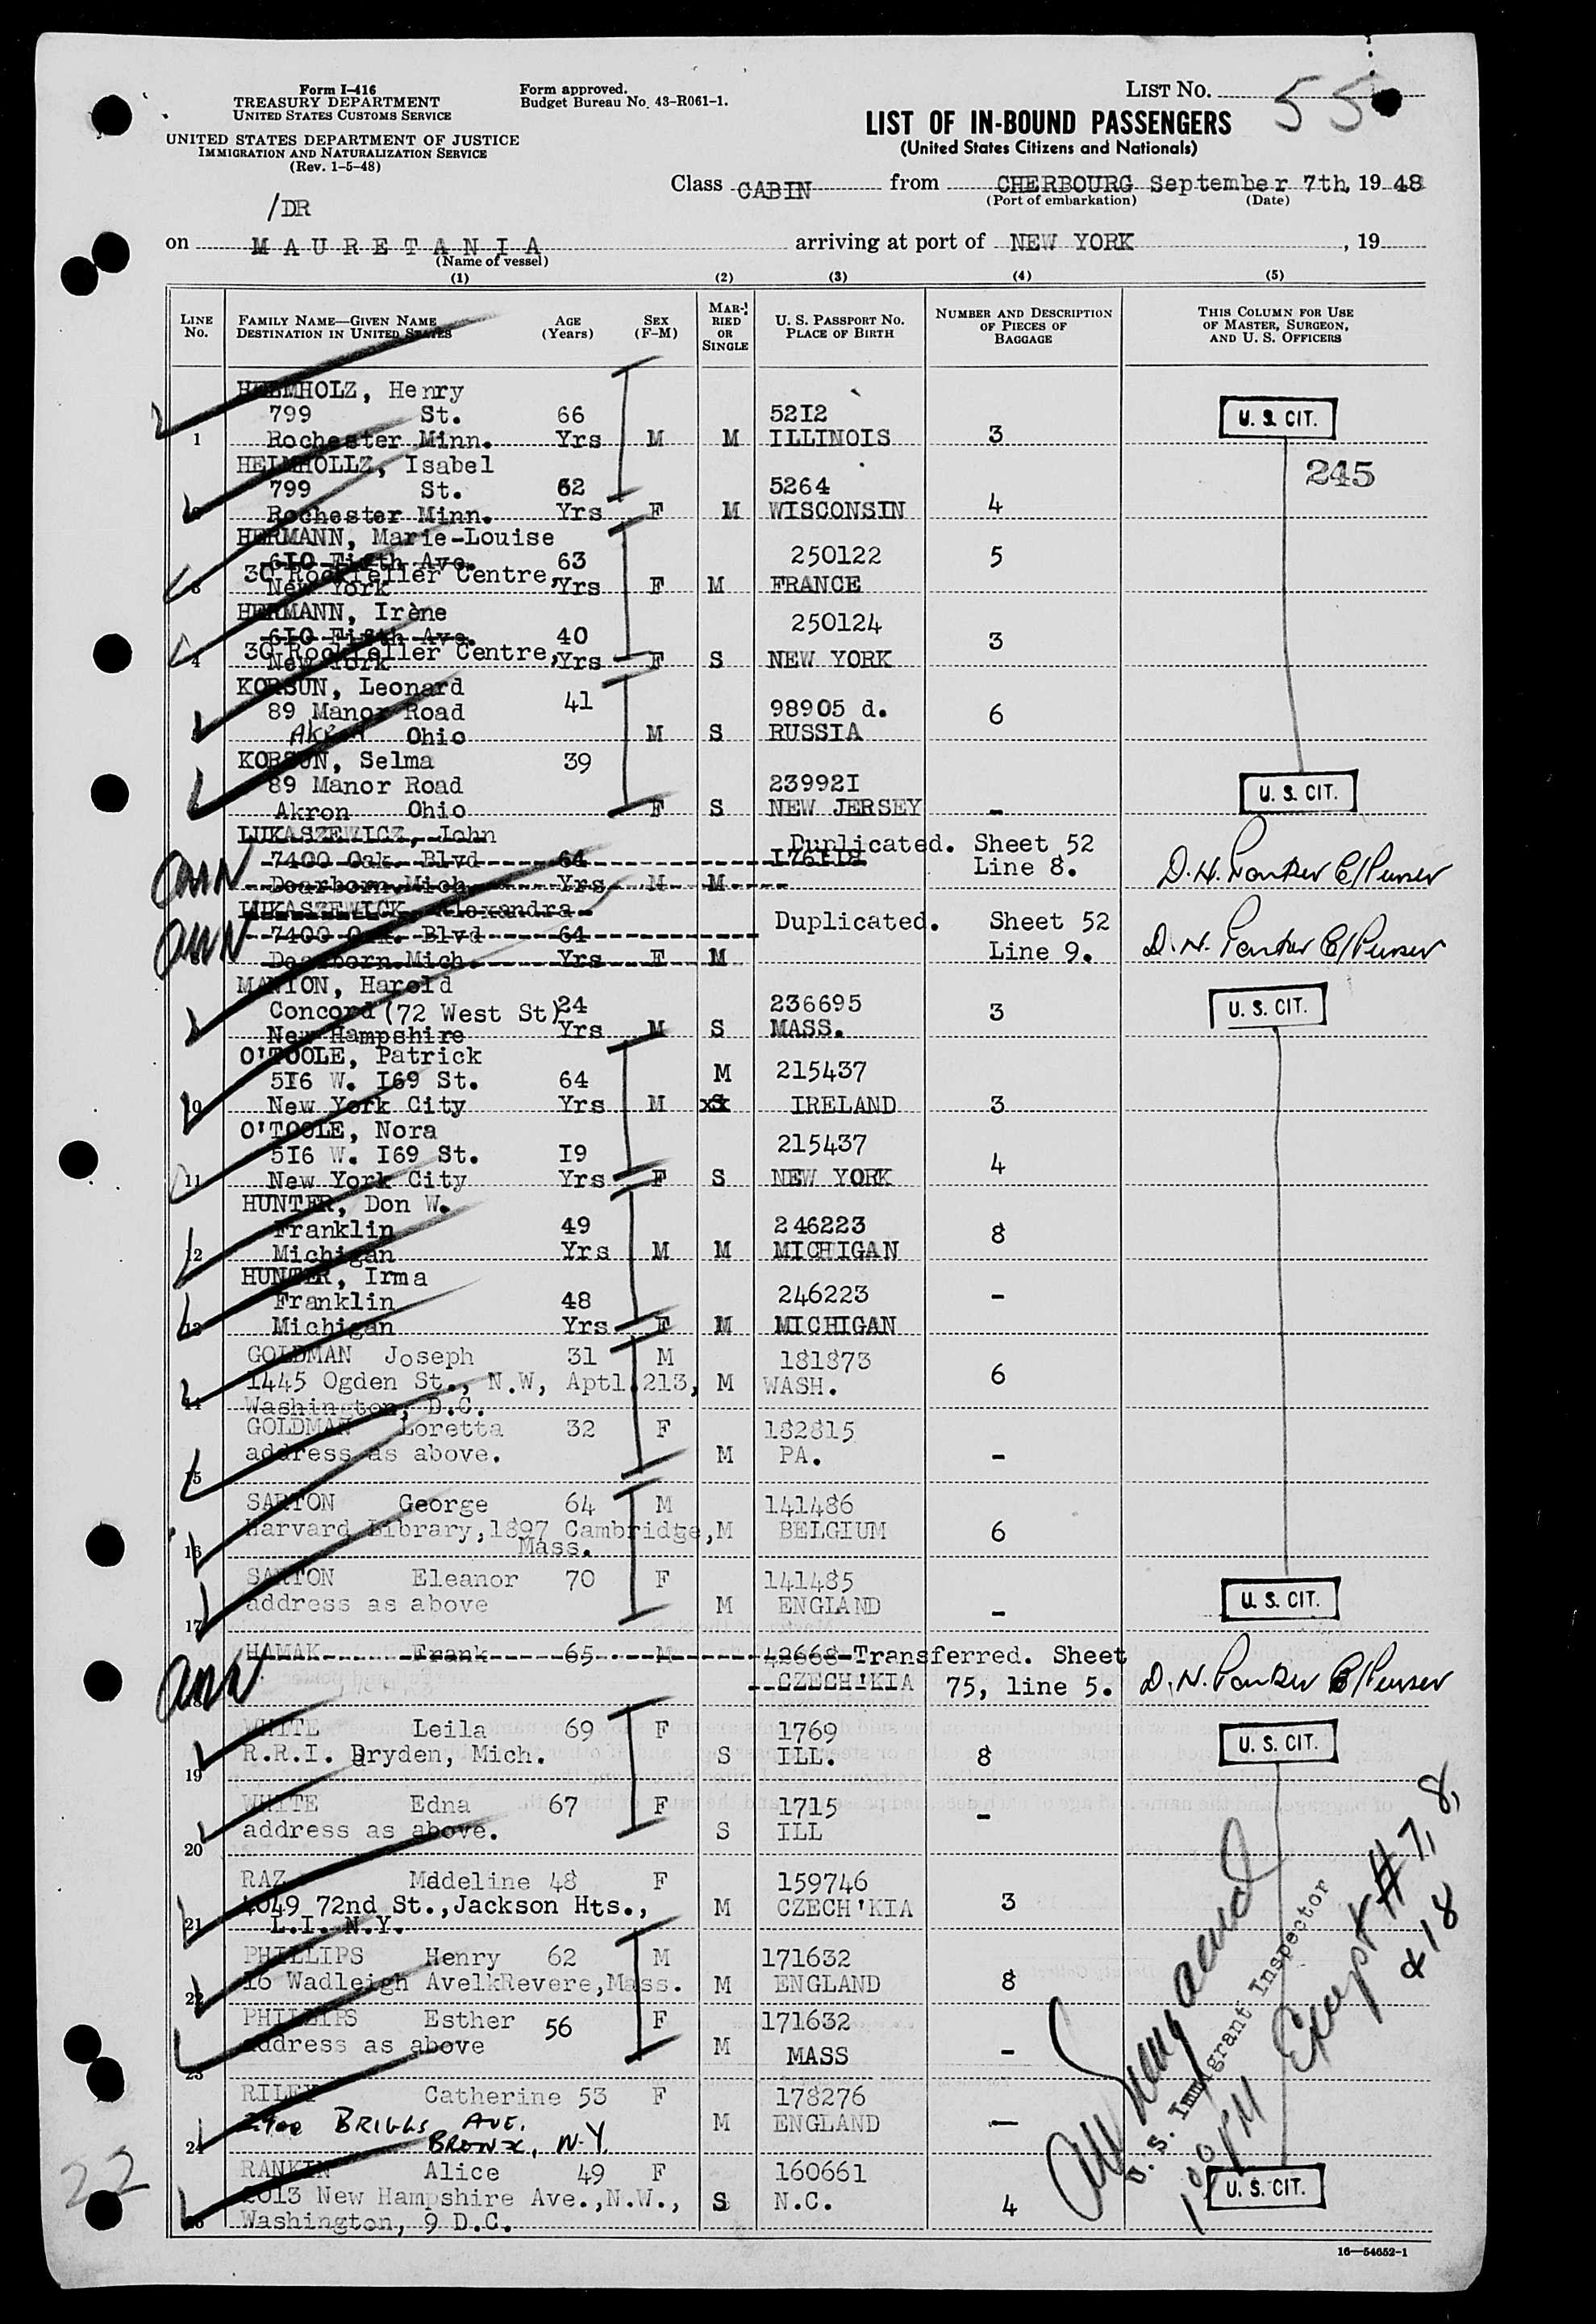 Form I-416
TREASURY DEPARTMENT
UNITED STATES CUSTOMS SERVICE
UNITED STATES DEPARTMENT OF JUSTICE
IMMIGRATION AND NATURALIZATION SERVICE
(Rev. 1-5-48)
Form approved.
Budget Bureau No. 43-R061-1.
LIST NO. 55
LIST OF IN-BOUND PASSENGERS
(United States Citizens and Nationals)
Class CABIN from CHERBOURG September 7th, 19 48
(Port of embarkation) (Date)
/DR
on MAURETANIA arriving at port of NEW YORK , 19
(Name of vessel)
(1) (2) (3) (4) (5)
LINE No.
FAMILY NAME—GIVEN NAME
DESTINATION IN UNITED STATES
AGE (Years)
SEX (F-M)
MARRIED OR SINGLE
U. S. PASSPORT NO.
PLACE OF BIRTH
NUMBER AND DESCRIPTION OF PIECES OF BAGGAGE
THIS COLUMN FOR USE OF MASTER, SURGEON, AND U. S. OFFICERS
HELMHOLZ, Henry
799 St. 66 5212 U. S. CIT.
1 Rochester Minn. Yrs M M ILLINOIS 3
HELMHOLLZ, Isabel 245
799 St. 62 5264
Rochester Minn. Yrs F M WISCONSIN 4
HERMANN, Marie-Louise
610 Fifth Ave. 63 250122 5
30 Rockfeller Centre,
New York Yrs F M FRANCE
HERMANN, Irène
610 Fifth Ave. 40 250124 3
30 Rockfeller Centre,
4 New York Yrs F S NEW YORK
KORSUN, Leonard
89 Manor Road 41 98905 d. 6
Akron Ohio M S RUSSIA
KORSUN, Selma 39
89 Manor Road 239921 U. S. CIT.
Akron Ohio F S NEW JERSEY -
LUKASZEWICZ, John Duplicated. Sheet 52
7400 Oak. Blvd 64 Line 8.
Dearborn Mich Yrs M M D. N. Parker C/Purser
LUKASZEWICK, Alexandra
7400 Oak. Blvd 64 Duplicated. Sheet 52
Dearborn Mich. Yrs F M Line 9. D. N. Parker C/Purser
MANION, Harold
Concord (72 West St) 24 236695 3 U. S. CIT.
New Hampshire Yrs M S MASS.
O'TOOLE, Patrick
516 W. 169 St. 64 M 215437
10 New York City Yrs M xSx IRELAND 3
O'TOOLE, Nora
516 W. 169 St. 19 215437
11 New York City Yrs F S NEW YORK 4
HUNTER, Don W.
Franklin 49 246223 8
12 Michigan Yrs M M MICHIGAN
HUNTER, Irma
Franklin 48 246223 -
13 Michigan Yrs F M MICHIGAN
GOLDMAN Joseph 31 M 181873
1445 Ogden St., N.W, Aptl.213, M WASH. 6
Washington, D.C.
GOLDMAN Loretta 32 F 182815
address as above. M PA. -
15
SARTON George 64 M 141486
Harvard Library,1897 Cambridge, M BELGIUM 6
16 Mass.
SARTON Eleanor 70 F 141485
address as above M ENGLAND - U. S. CIT.
17
HAMAK Frank 65 M 42668 Transferred. Sheet
CZECH'KIA 75, line 5. D. N. Parker C/Purser
WHITE Leila 69 F 1769 U. S. CIT.
R.R.I. Dryden, Mich. S ILL. 8
19
WHITE Edna 67 F 1715 -
address as above. S ILL
20
RAZ Madeline 48 F 159746
4049 72nd St.,Jackson Hts., M CZECH'KIA 3
21 L.I. N.Y.
PHILLIPS Henry 62 M 171632
16 Wadleigh AvelkRevere,Mass. M ENGLAND 8
22
PHILLIPS Esther 56 F 171632
address as above M MASS -
23
RILEY Catherine 53 F 178276
2900 BRIGGS AVE. M ENGLAND —
24 BRONX, N.Y.
RANKIN Alice 49 F 160661
2013 New Hampshire Ave.,N.W., S N.C. 4 U. S. CIT.
Washington, 9 D.C.
U. S. Immigrant Inspector
Except #7, 8,
& 18
22
16—54652-1